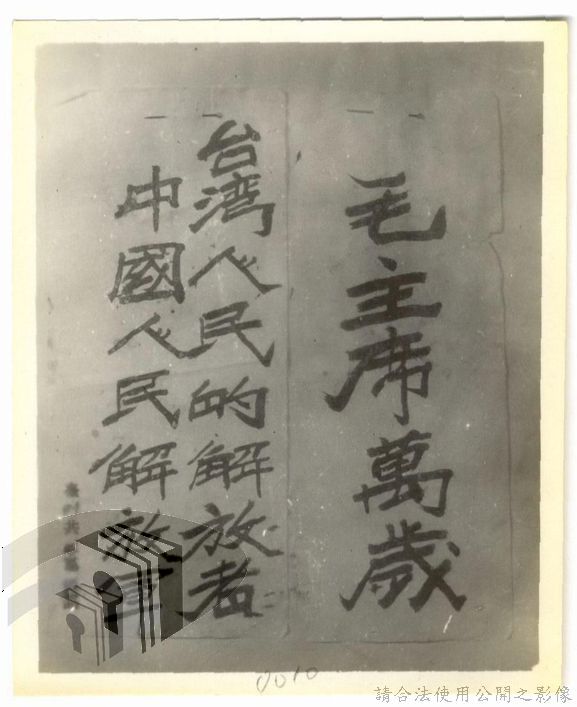 毛主席萬歲
台湾人民的解放者
中國人民解放軍
0010
請合法使用公開之影像